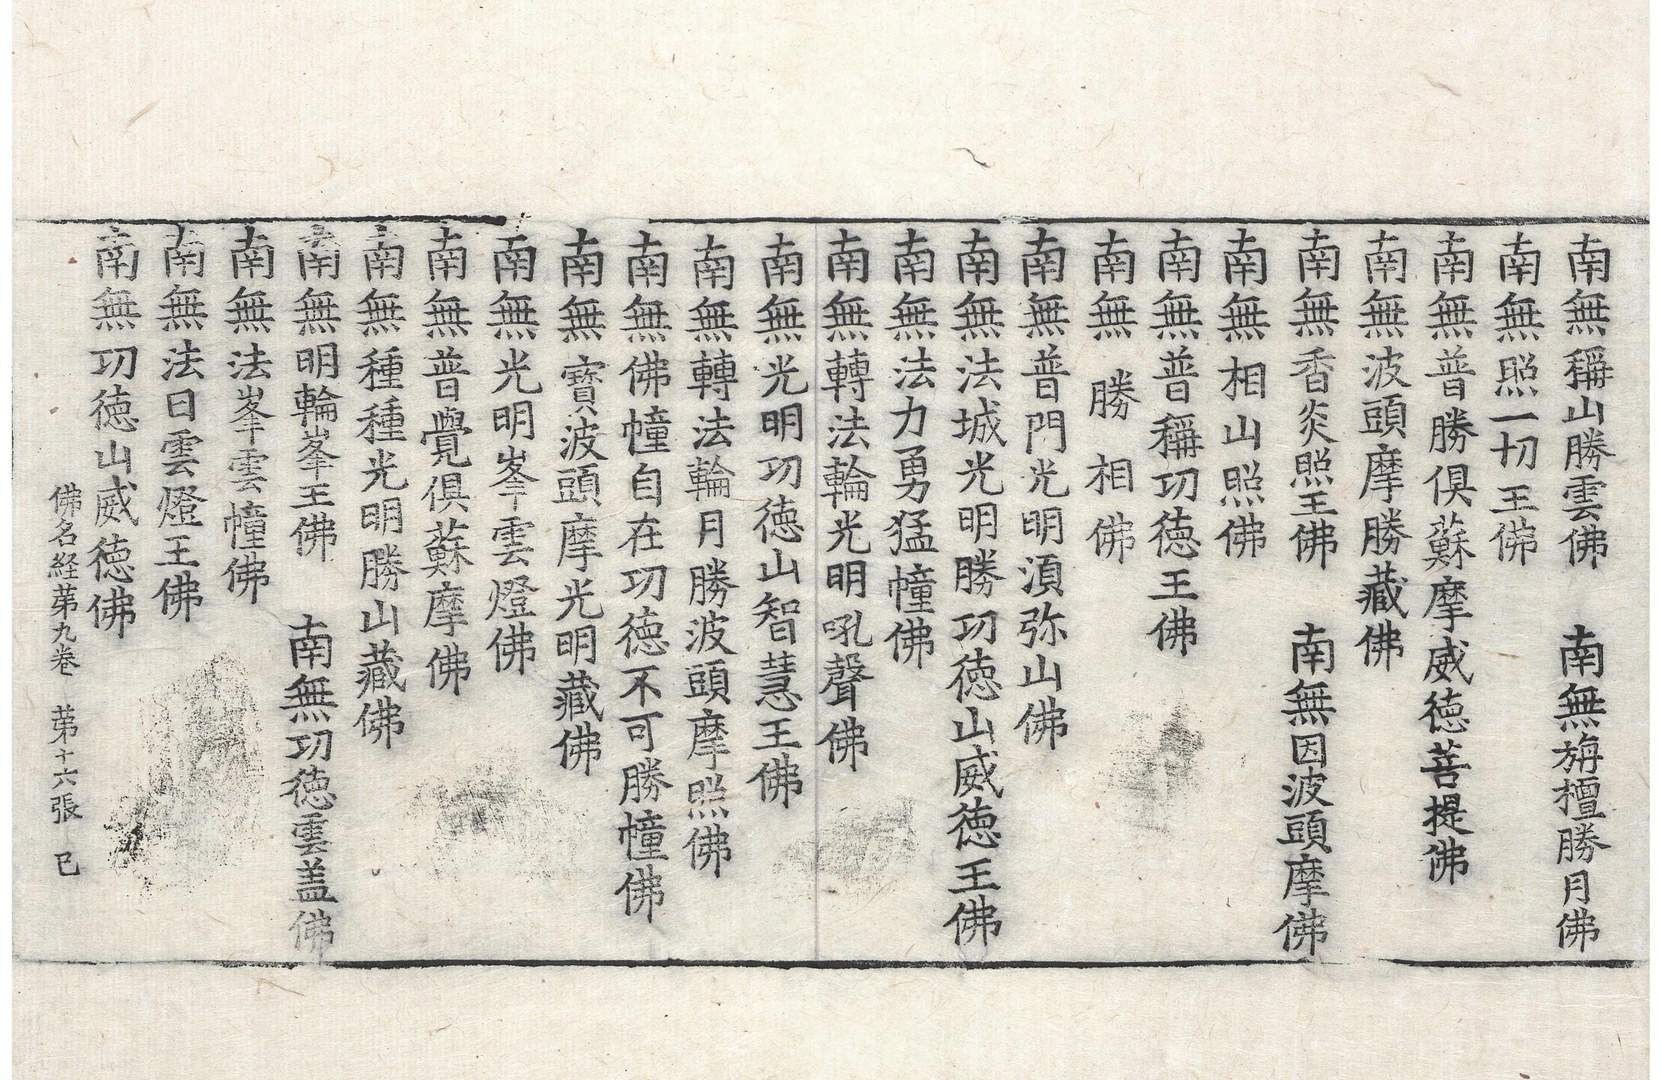 南無稱山勝雲佛　南無旃檀勝月佛
南無照一切王佛
南無普勝俱蘇摩威德菩提佛
南無波頭摩勝藏佛
南無香炎照王佛　南無因波頭摩佛
南無相山照佛
南無普稱功德王佛
南無勝相佛
南無普門光明湏弥山佛
南無法城光明勝功德山威德王佛
南無法力勇猛幢佛
南無轉法輪光明吼聲佛
南無光明功德山智慧王佛
南無轉法輪月勝波頭摩照佛
南無佛幢自在功德不可勝幢佛
南無寶波頭摩光明藏佛
南無光明峯雲燈佛
南無普覺俱蘇摩佛
南無種種光明勝山藏佛
南無明輪峯王佛　南無功德雲盖佛
南無法峯雲幢佛
南無法日雲燈王佛
南無功德山威德佛
佛名経苐九卷　苐十六張　巳